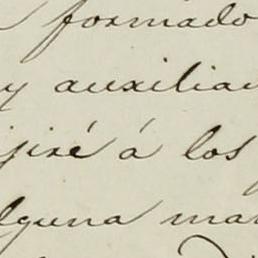 formado
y auxilia
jiré á los
lguna ma